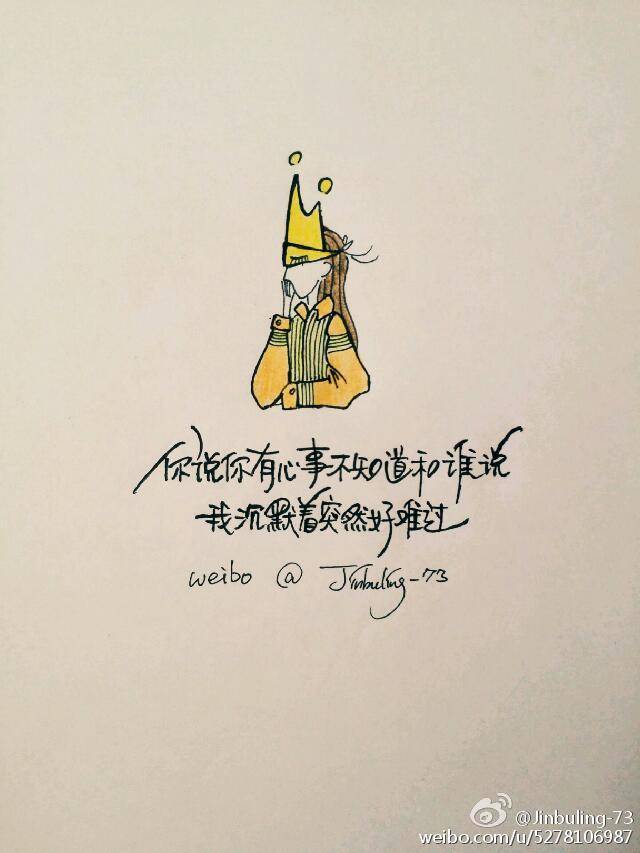 你说你有心事不知道和谁说
我沉默着突然好难过
weibo @ Jinbuling-73
@Jinbuling-73
weibo.com/u/5278106987